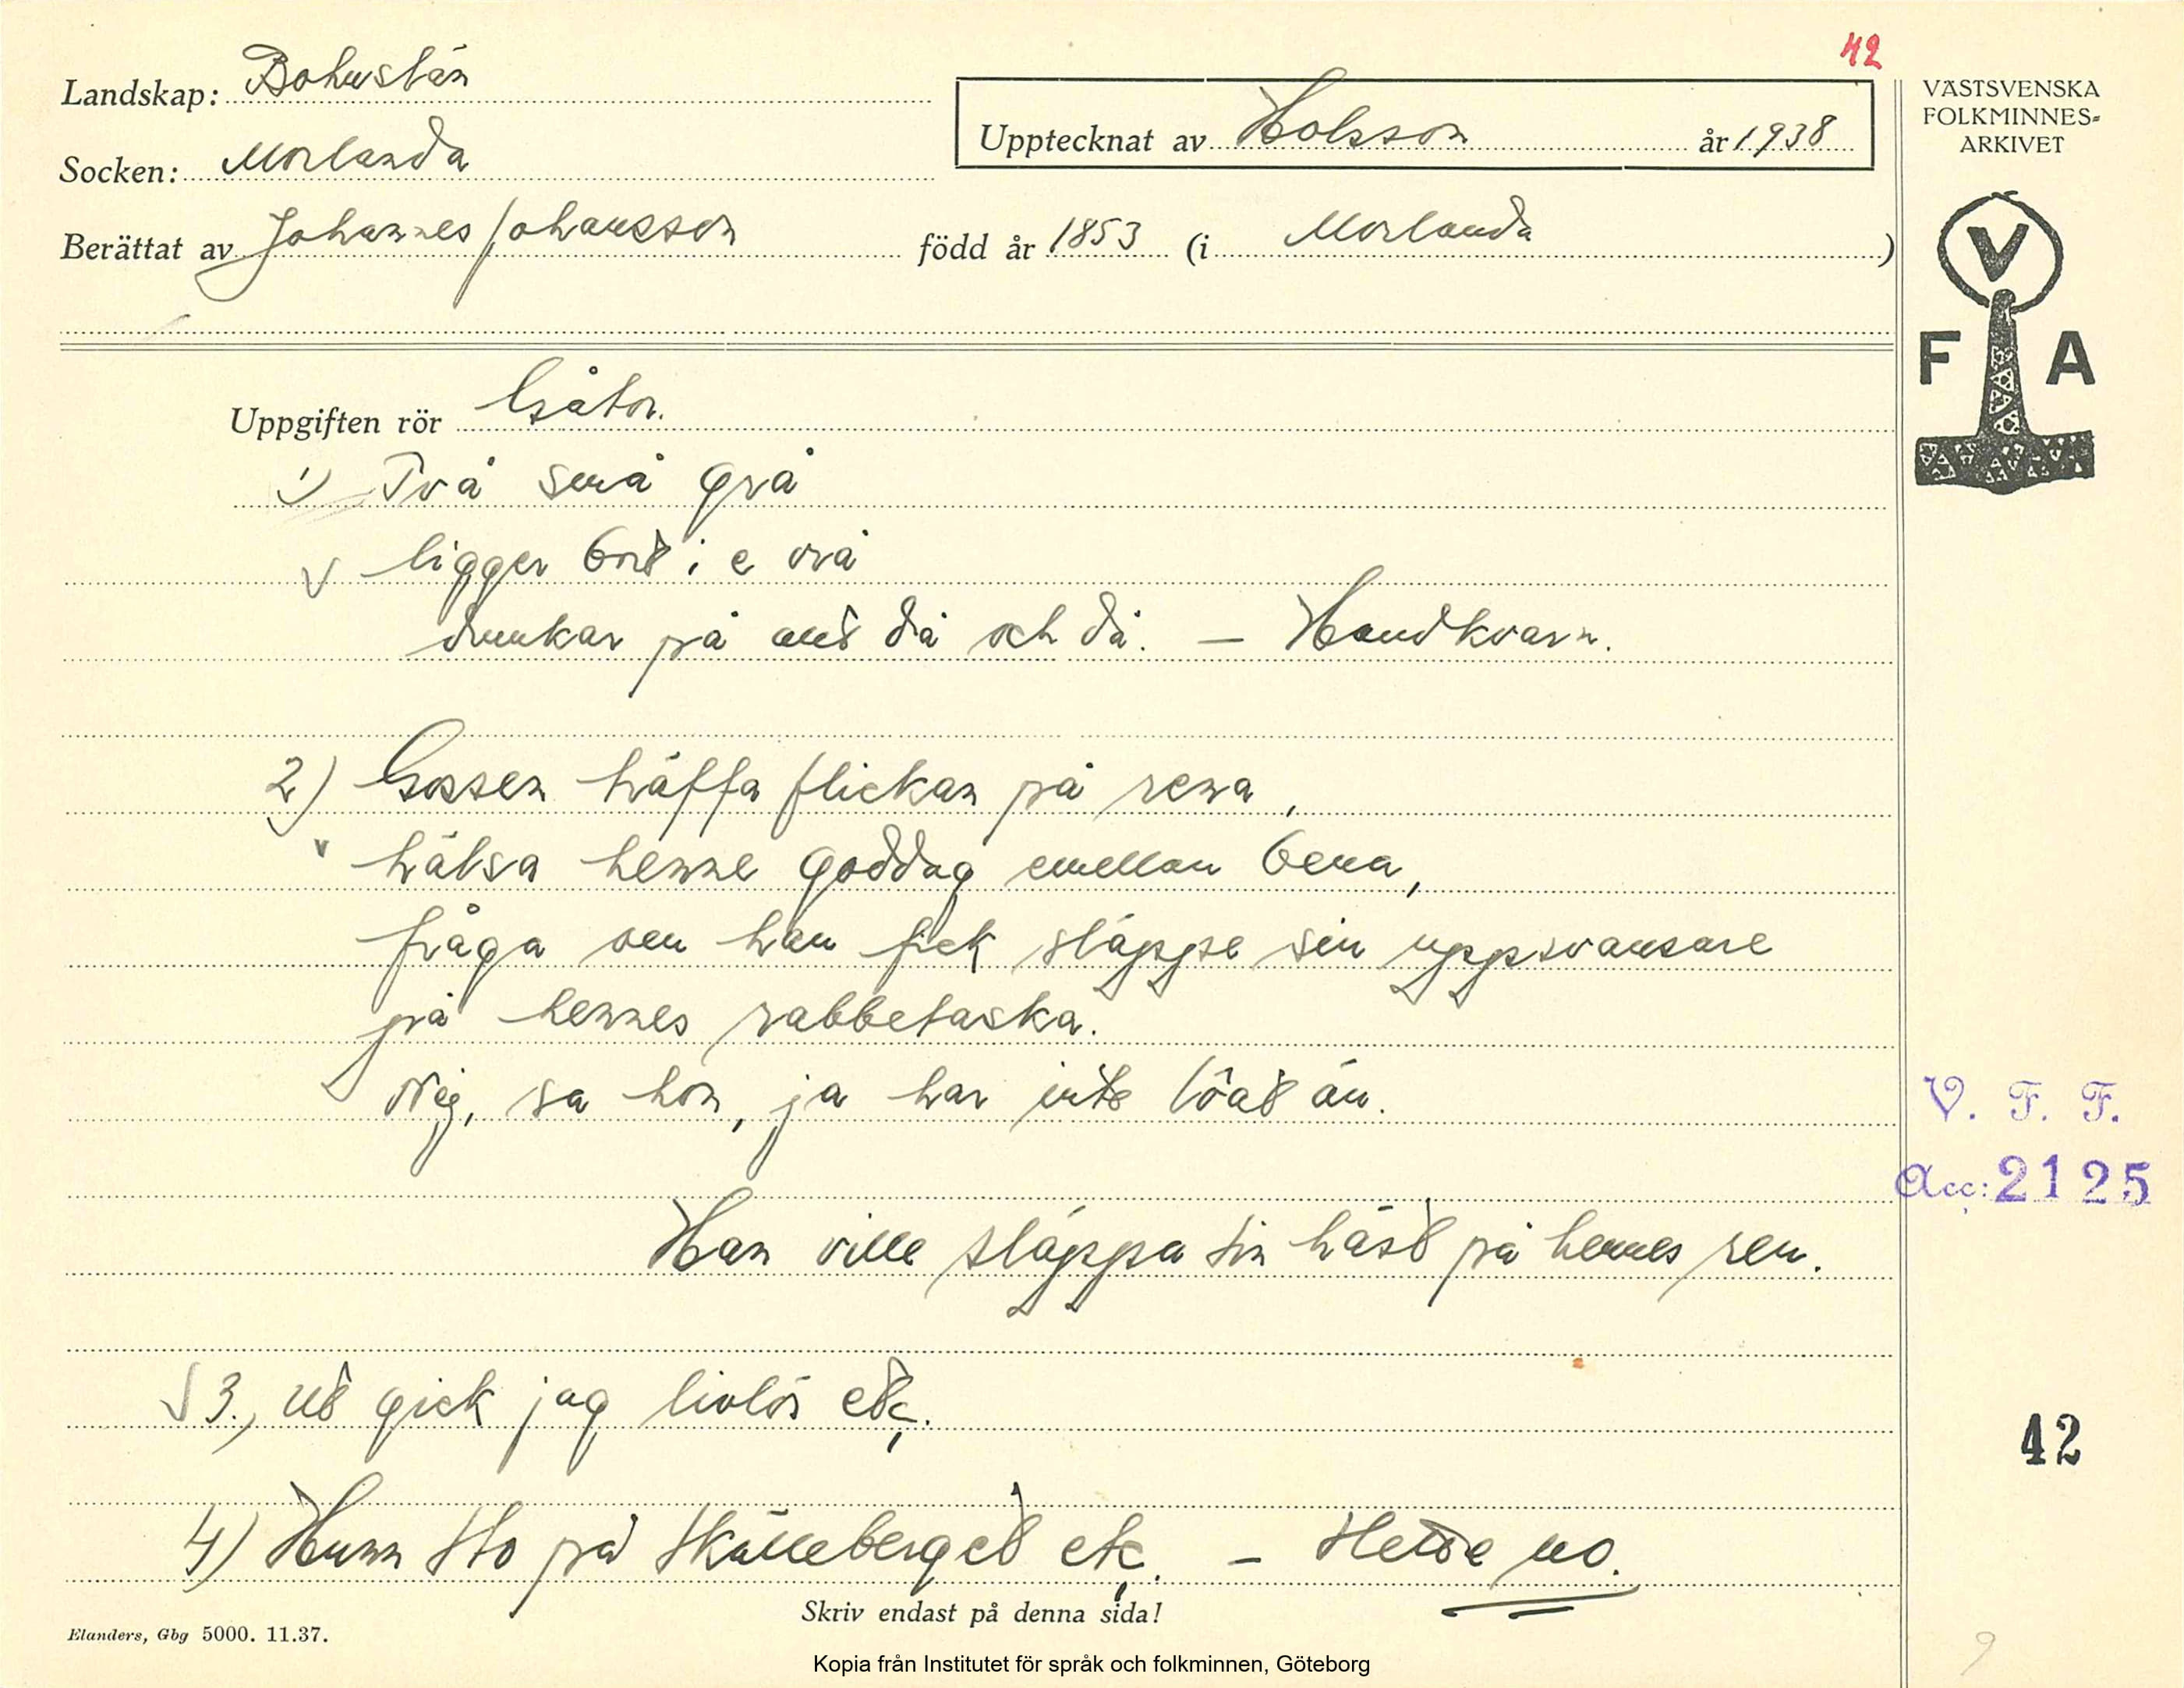 42
Landskap: Bohuslän
Socken: Morlanda
Upptecknat av Holsson år 1938
Berättat av Johannes Johansson född år 1853 (i Morlanda)
VÄSTSVENSKA
FOLKMINNES-
ARKIVET
V
F A
Uppgiften rör Gåtor.
1) Två små grå
ligger bort i e vrå
dunkar på ant då och då. — Handkvarn.
2) Gossen träffa flickan på rena,
hälsa henne goddag emellan bena,
fråga om han fick släppe sin uppsvansare
på hennes rabbetaska.
Nej, sa hon, ja har inte lôat än.
Han ville släppa sin häst på hennes ren.
3., ut gick jag livlös etc.
4) Hunn sto på skälleberget etc. —
V. F. F.
Acc: 2125
42
Skriv endast på denna sida!
Elanders, Gbg 5000. 11.37.
9
Kopia från Institutet för språk och folkminnen, Göteborg